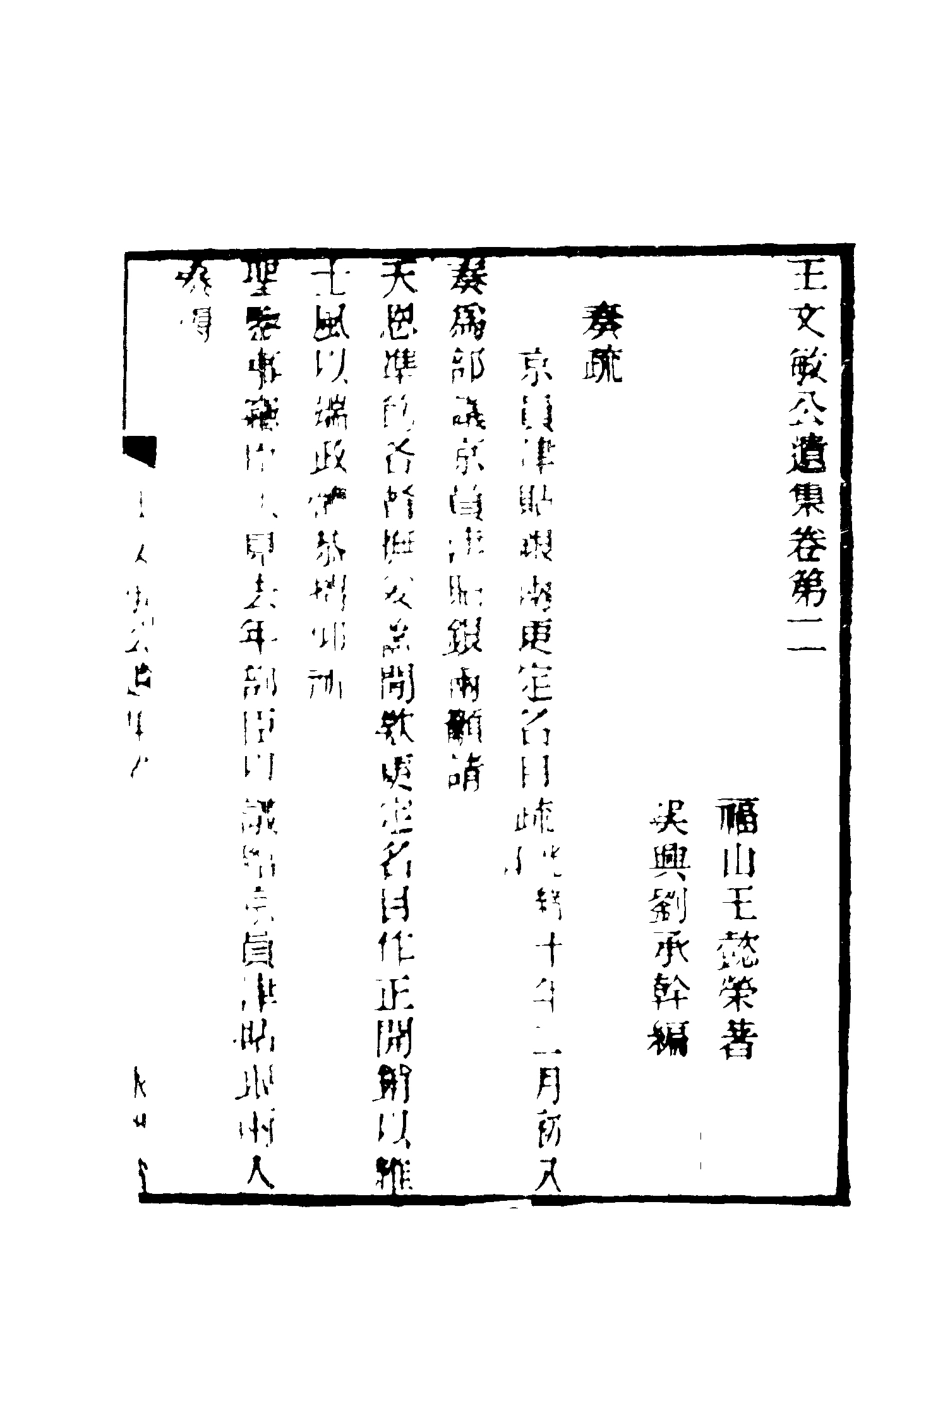 王文敏公遺集卷第二
福山王懿榮著
吳興劉承幹編
奏疏
京員津貼銀兩更定名目疏光緒十年二月初八日
奏為部議京員津貼銀兩顧請
天恩準飭各督撫及關名目作正開銷以維
士風以端政體恭摺仰祈
聖鑒事竊臣見去年部臣以議給京員津貼銀兩入
奏得